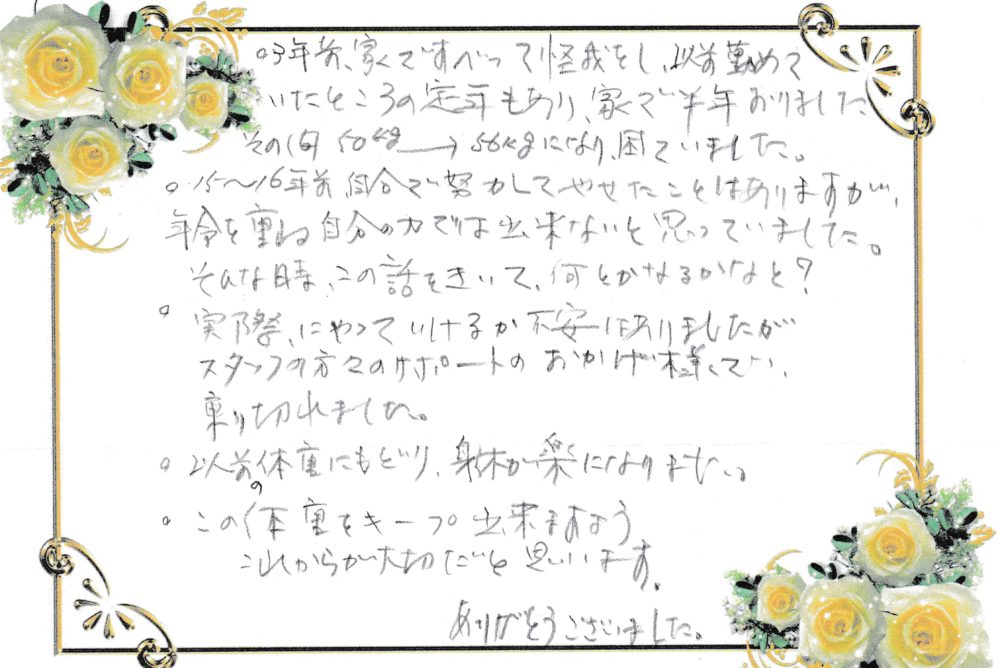 ○3年前、家ですべって怪我をし、以前勤めて
いたところの定年もあり、家で半年おりました。
その間50kg→56kgになり、困ていました。
○15〜16年前自分で努力してやせたことはありますが、
年令を重ね自分の力では出来ないと思っていました。
そんな時、この話をきいて、何とかなるかなと?
○実際、にやっていけるか不安はありましたが
スタッフの方々のサポートのおかげ様で、
乗り切れました。
○以前の体重にもどり、身体が楽になりました。
○この体重をキープ出来ますよう
これからが大切だと思います。
ありがとうございました。